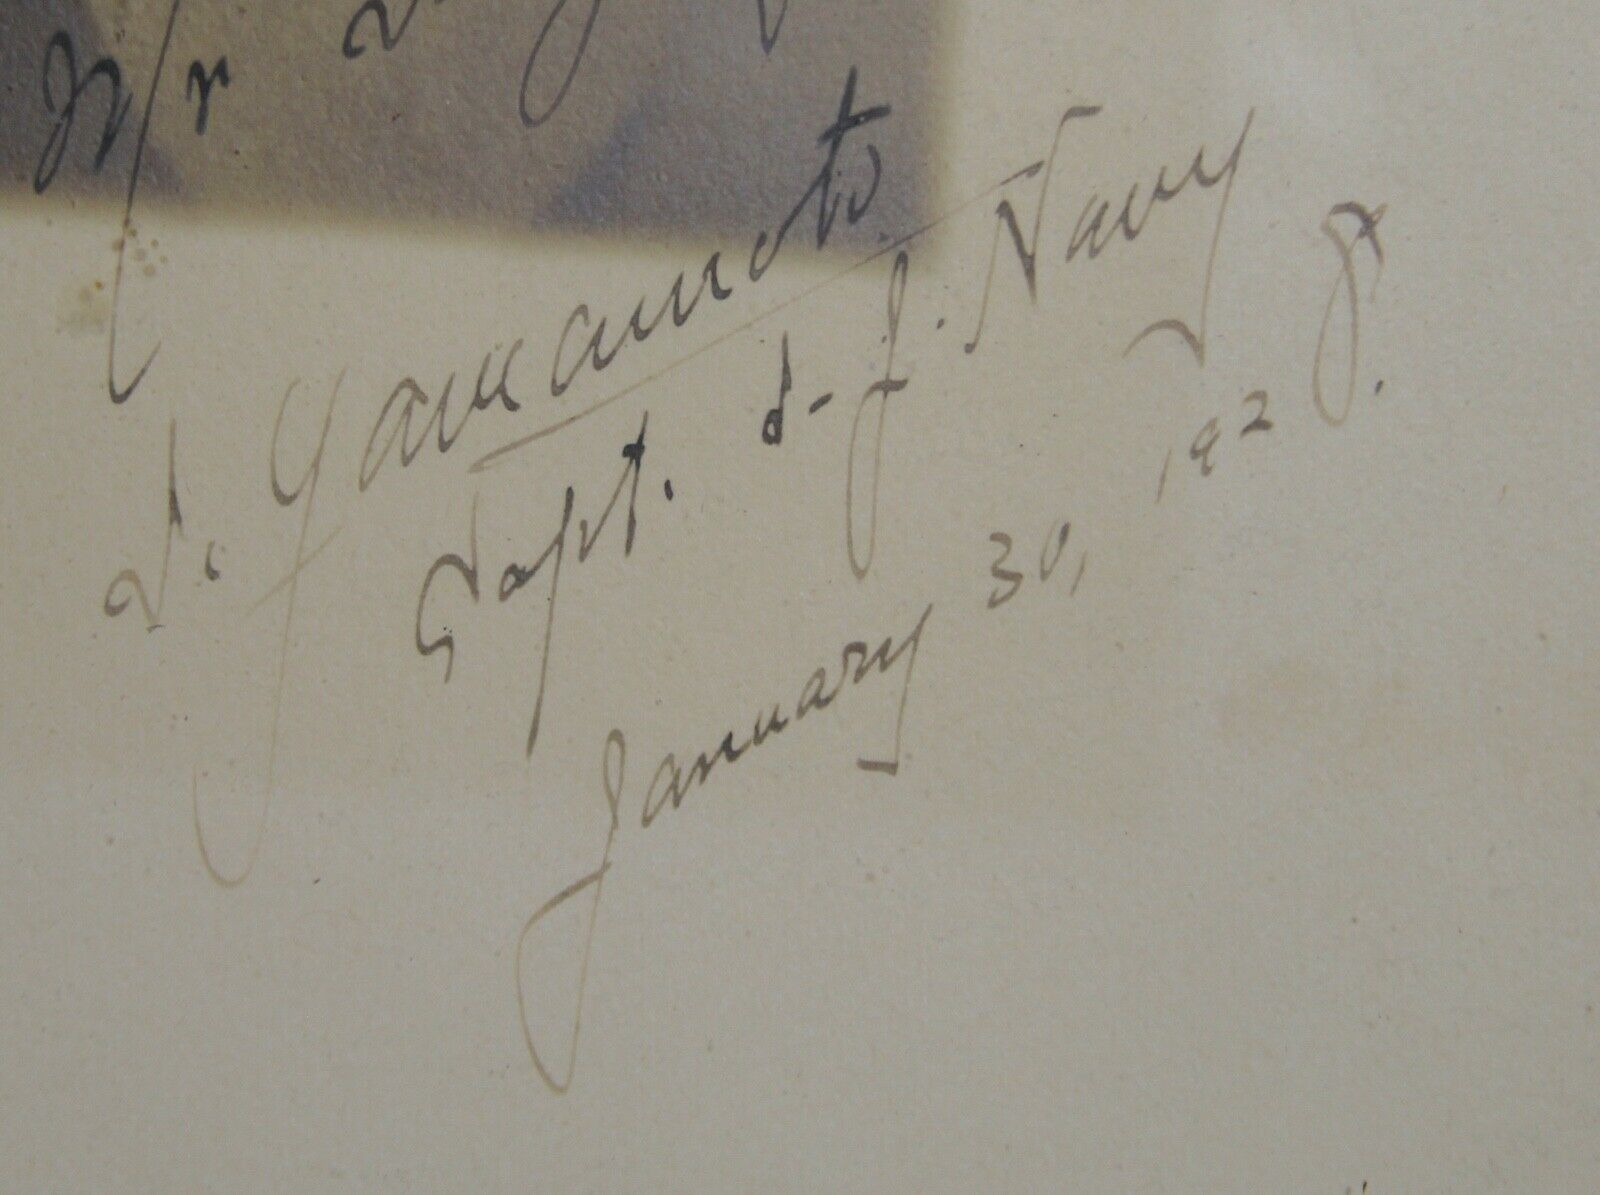 Mr
I. Yamamoto
Capt. I. J. Navy
January 30, 1928.